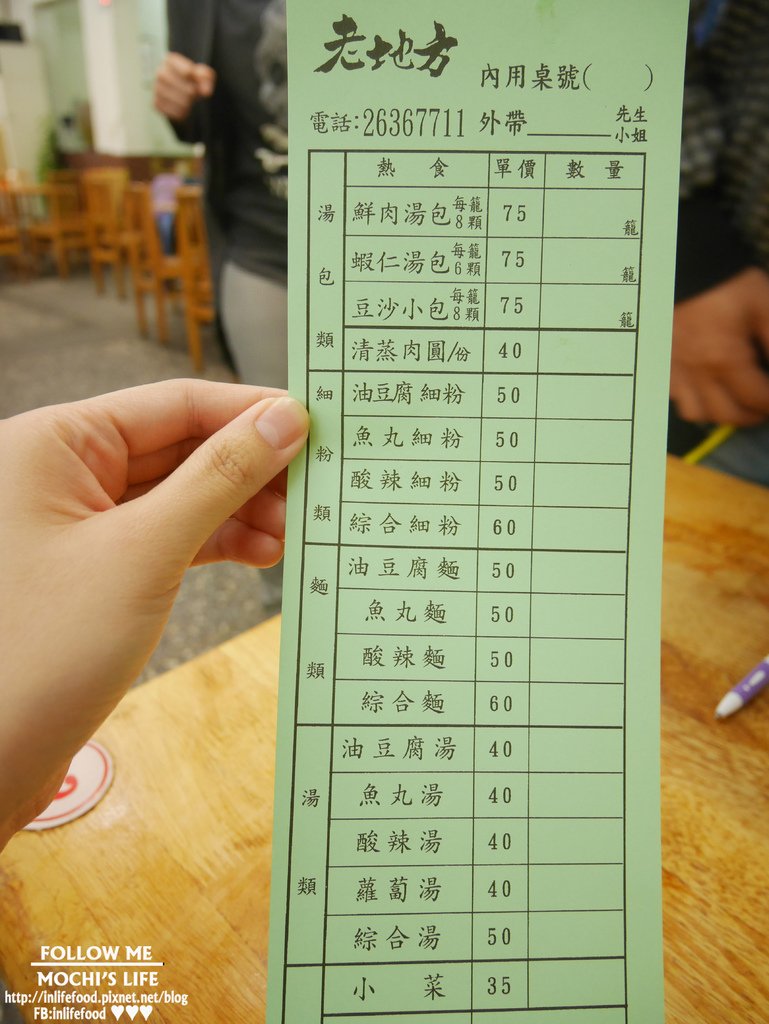 老地方
內用桌號(　　)
電話:26367711 外帶________先生
小姐
熱食 單價 數量
湯包類
鮮肉湯包 每籠8顆 75 籠
蝦仁湯包 每籠6顆 75 籠
豆沙小包 每籠8顆 75 籠
清蒸肉圓/份 40
細粉類
油豆腐細粉 50
魚丸細粉 50
酸辣細粉 50
綜合細粉 60
麵類
油豆腐麵 50
魚丸麵 50
酸辣麵 50
綜合麵 60
湯類
油豆腐湯 40
魚丸湯 40
酸辣湯 40
蘿蔔湯 40
綜合湯 50
小菜 35
FOLLOW ME
MOCHI'S LIFE
http://inlifefood.pixnet.net/blog
FB:inlifefood ♥♥♥